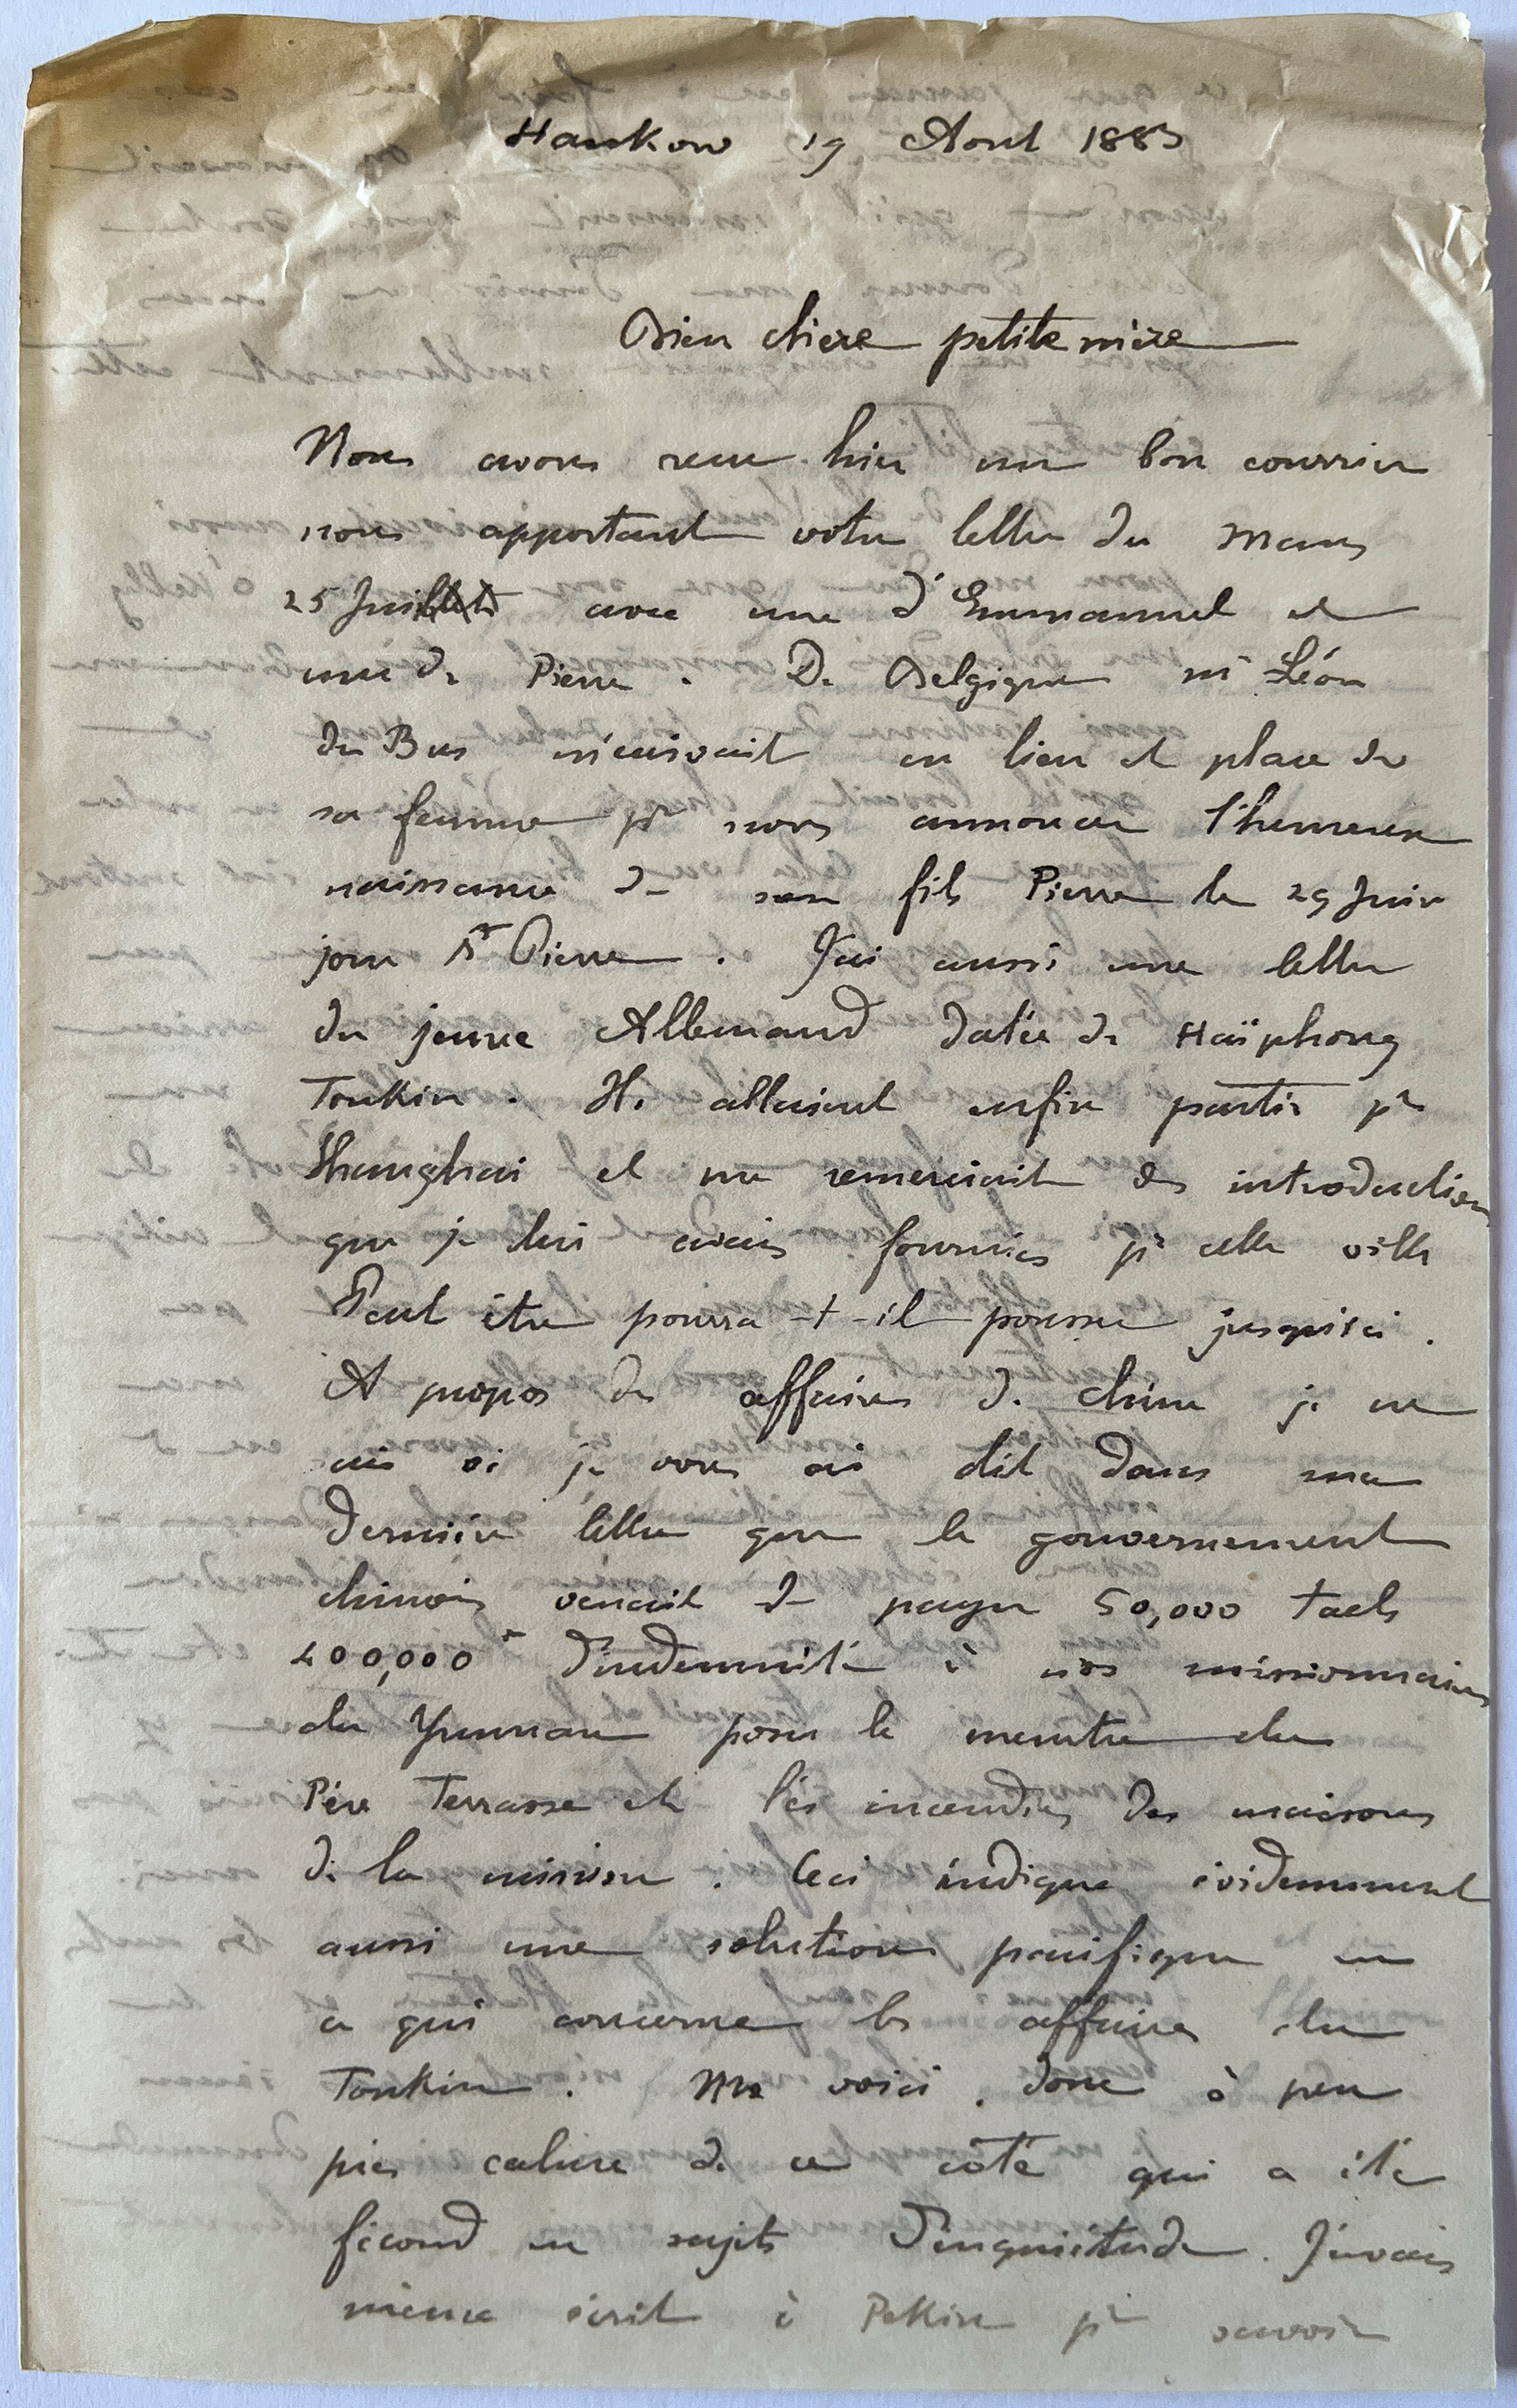 Hankow 19 Aout 1883
Bien chere petite mère
Nous avons reçu hier un bon courrier
nous apportant votre lettre du Mans
25 Juin avec une d'Emmanuel et
une de Pierre. De Belgique Mr Léon
du Bus m'écrivait en lieu et place de
sa femme pr nous annoncer l'heureuse
naissance de son fils Pierre le 29 Juin
jour St Pierre. J'ai aussi une lettre
du jeune Allemand datée de Haïphong
Tonkin. Ils allaient enfin partir pr
Shanghai et me remerciait des introductions
que je lui avais fournies pr cette ville
Peut être pourra-t-il pousser jusqu'ici.
A propos des affaires de Chine je ne
sais si je vous ai dit dans ma
dernière lettre que le gouvernement
chinois venait de payer 50,000 taels
400,000 f d'indemnité à nos missionnaires
du Yunnan pour le meurtre du
Père Terrasse et les incendies des maisons
de la mission. Ceci indique évidemment
aussi une solution pacifique en
ce qui concerne les affaires du
Tonkin. Me voici donc à peu
près calme de ce côté qui a été
fécond en sujets d'inquiétude. J'avais
même écrit à Pekin pr savoir